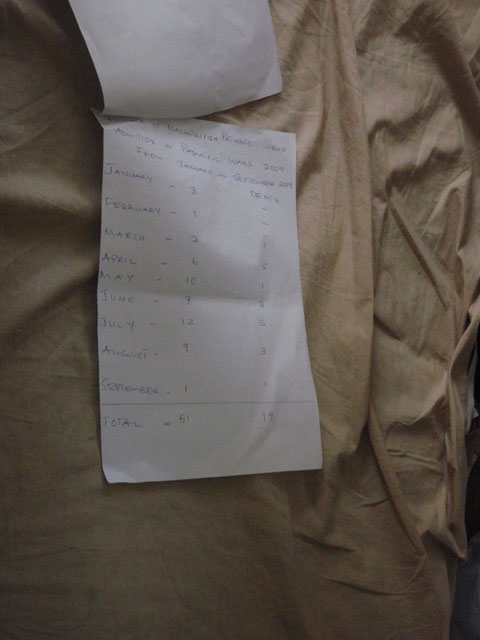 MALNOURISH PATIENTS WERE
ADMITTED IN PAEDIATRIC WARD 2009
FROM JANUARY – SEPTEMBER 2009
DEATH
JANUARY - 3 -
FEBRUARY - 1 -
MARCH - 2
APRIL - 6 5
MAY - 10 1
JUNE - 7 3
JULY - 12 5
AUGUST - 9 3
SEPTEMBER - 1 1
TOTAL = 51 19